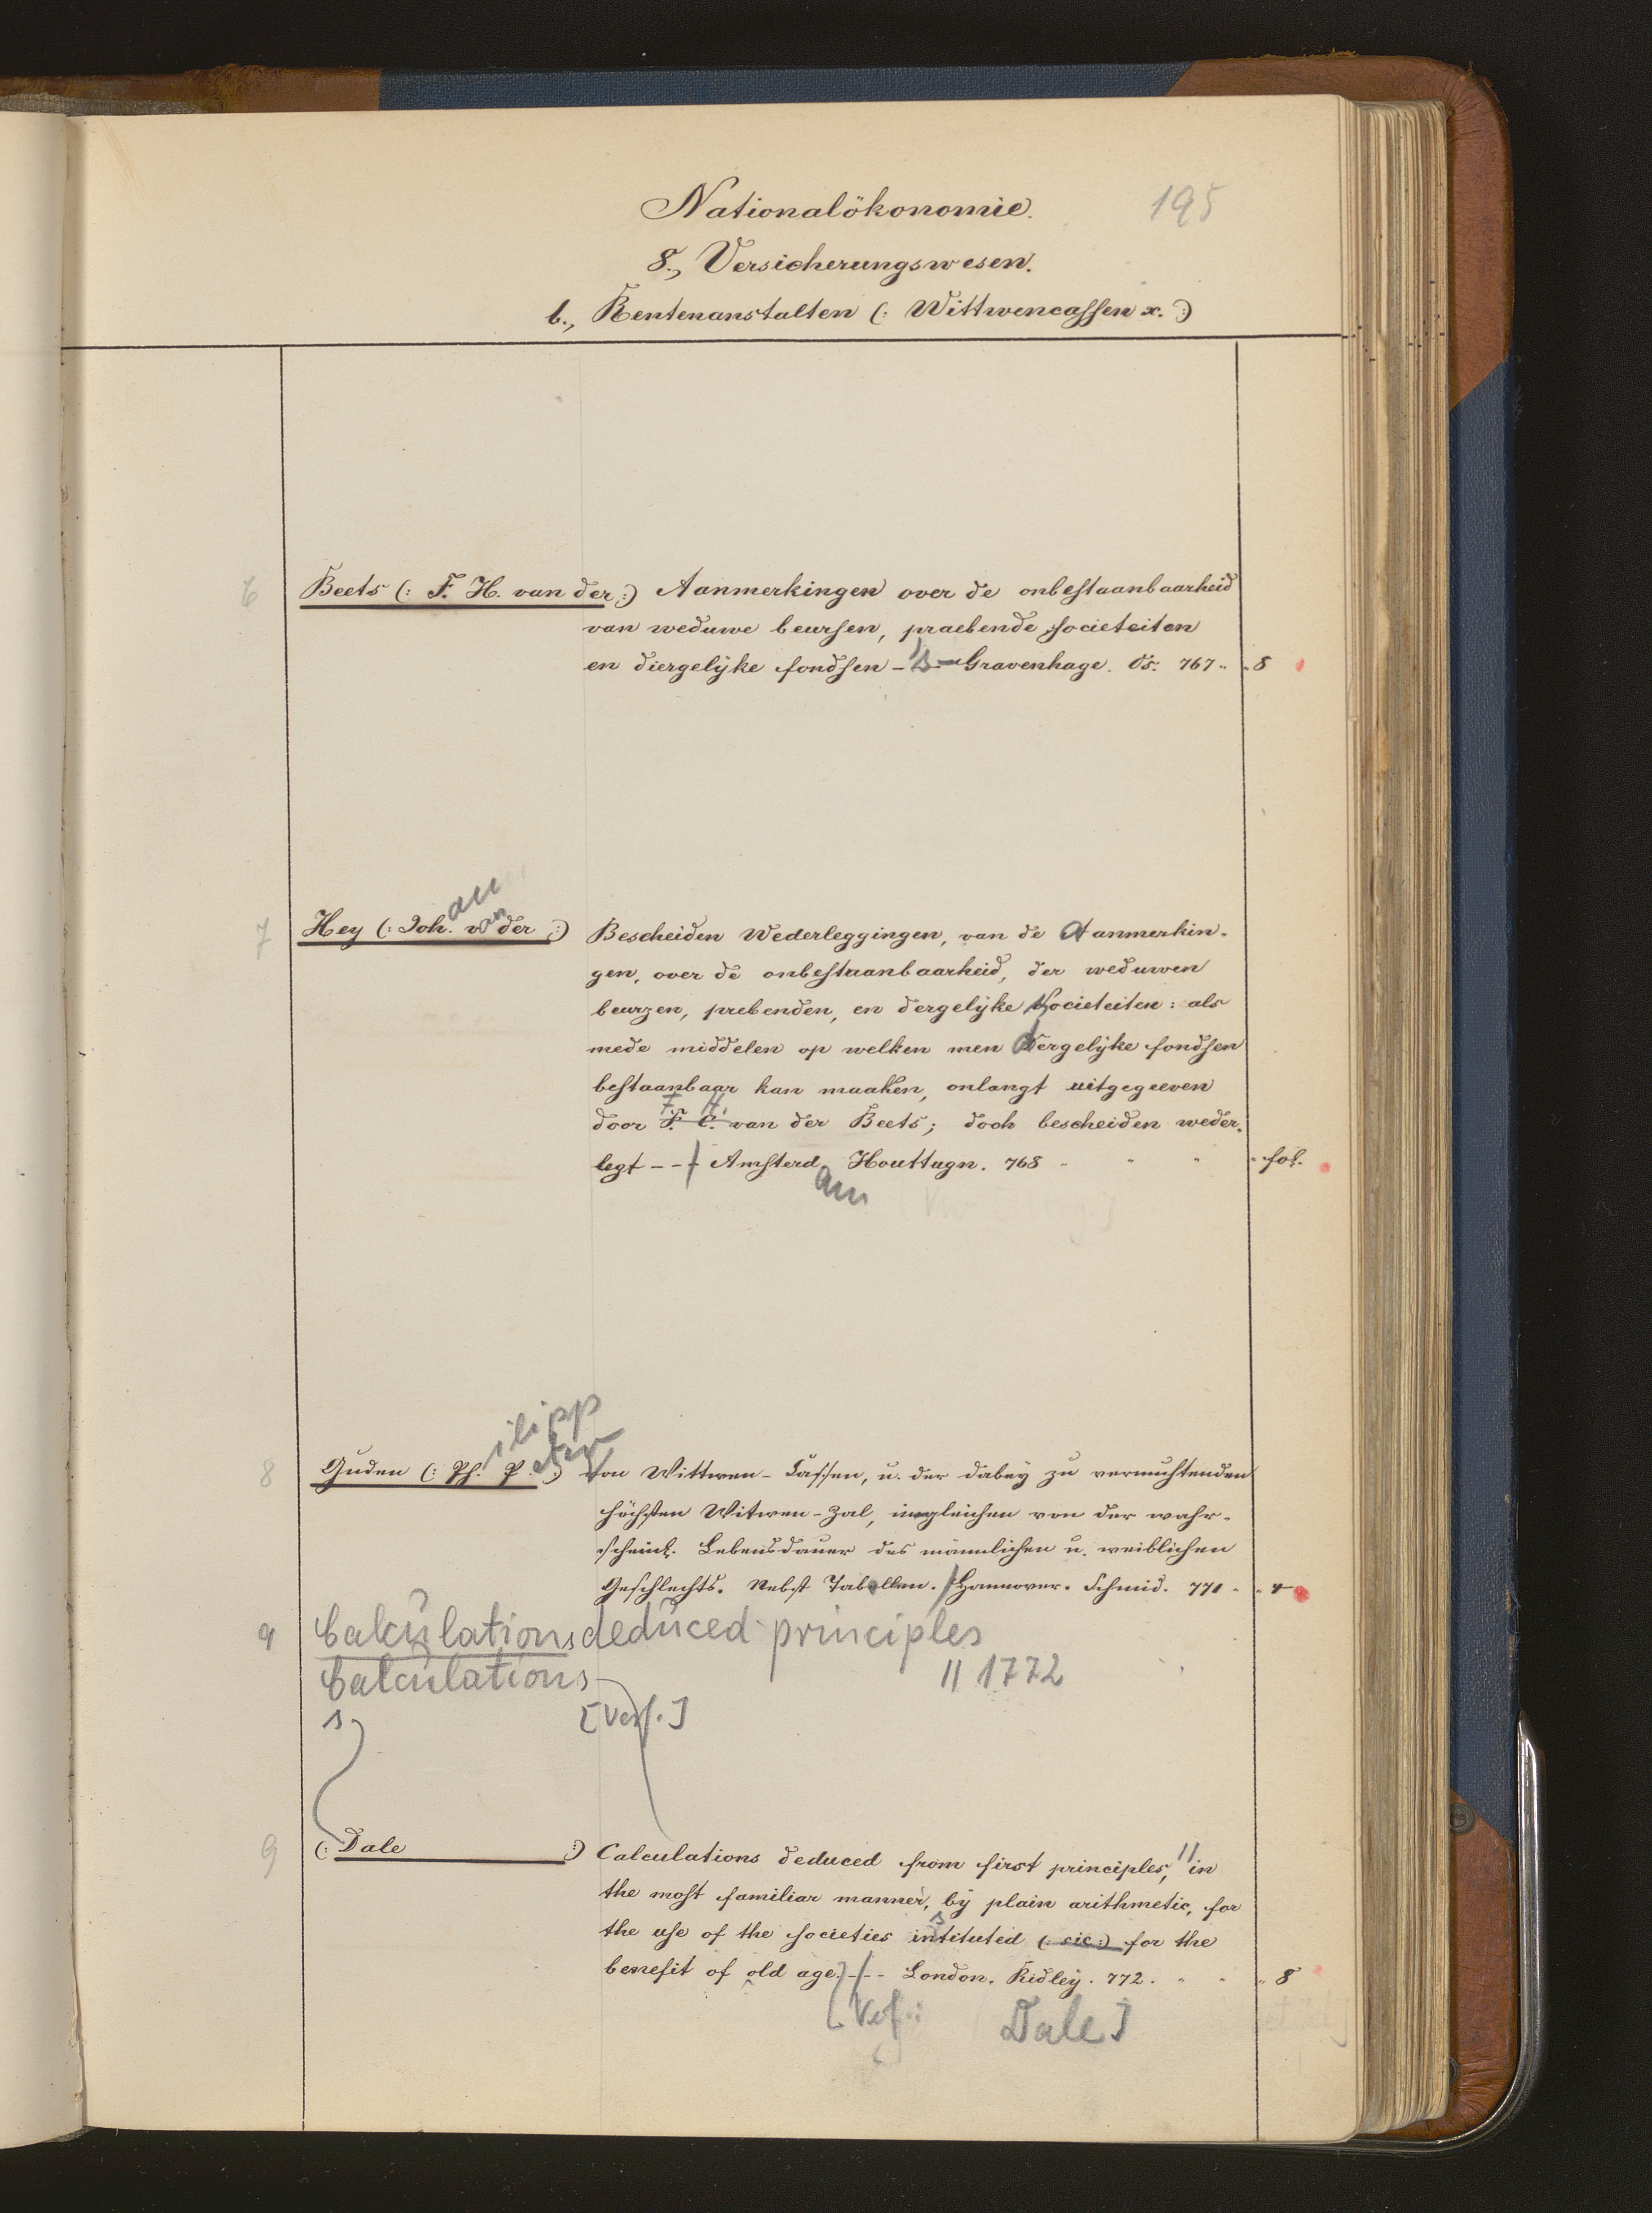 Nationalökonomie. 195
8., Versicherungswesen.
b., Rentenanstalten (: Wittwencassen x. :)
6 Beets (: F. H. van der :) Aanmerkingen over de onbestaanbaarheid
van weduwe beursen, praebende societeiten
en diergelÿke fondsen - 's-Gravenhage. Os. 767. 8
an
7 Hey (: Joh. van der :) Bescheiden Wederleggingen, van de Aanmerkin-
gen, over de onbestaanbaarheid, der weduwen
beurzen, prebenden, en dergelÿke Societeiten: als
mede middelen op welken men dergelÿke fondsen
bestaanbaar kan maaken, onlangt uitgegeeven
F. H.
door F. C. van der Beets; doch bescheiden weder-
legt - - - Amsterd. Houttugn. 768 fol.
am
ilipp
eter
8 Guden (: Ph. P. :) Von Wittwen-Cassen, u. der dabey zu vermuhtenden
höchsten Witwen-Zal, ingleichen von der wahr-
scheinl. Lebensdauer des männlichen u. weiblichen
Geschlechts. Nebst Tabellen. / Hannover. Schmid. 771 4
9 Calculations deduced principles
Calculations // 1772
s. [Verf.]
9 (: Dale :) Calculations deduced from first principles, // in
the most familiar manner, by plain arithmetic, for
s
the use of the societies intituted (: sic :) for the
benefit of old age. - / - - London. Ridley. 772. 8
[Verf.: Dale]